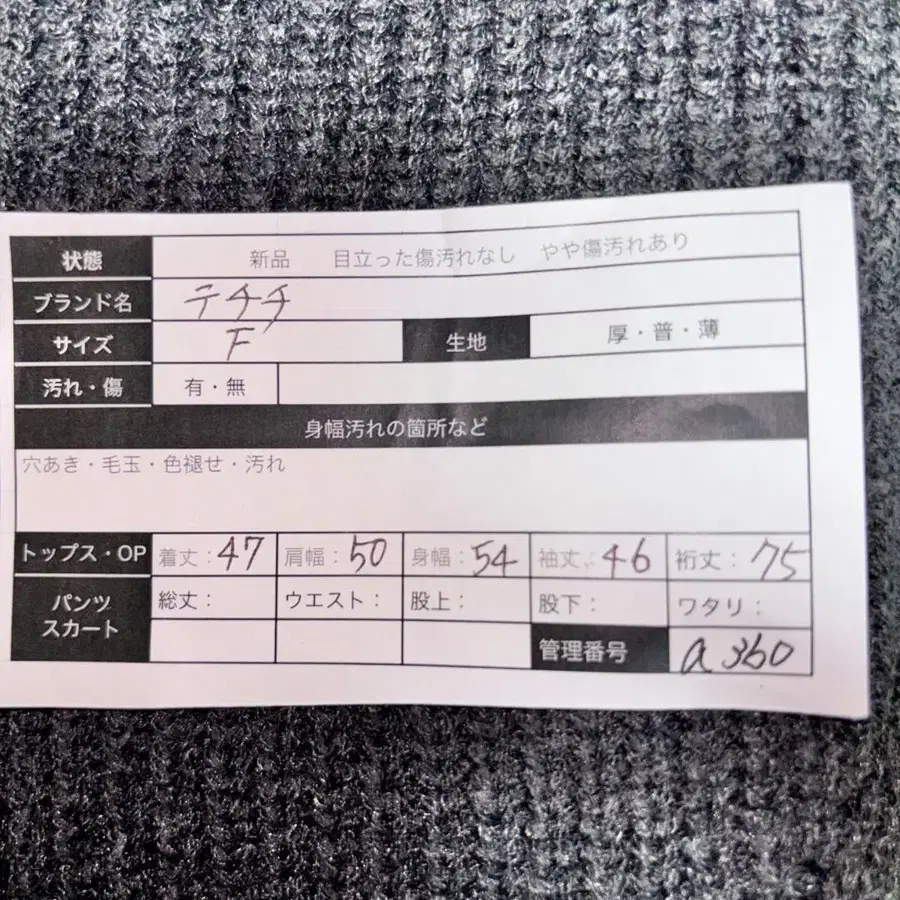 状態 新品 目立った傷汚れなし やや傷汚れあり
ブランド名 テチチ
サイズ F 生地 厚・普・薄
汚れ・傷 有・無
身幅汚れの箇所など
穴あき・毛玉・色褪せ・汚れ
トップス・OP 着丈：47 肩幅：50 身幅：54 袖丈：46 裄丈：75
パンツ スカート 総丈： ウエスト： 股上： 股下： ワタリ：
管理番号 a360